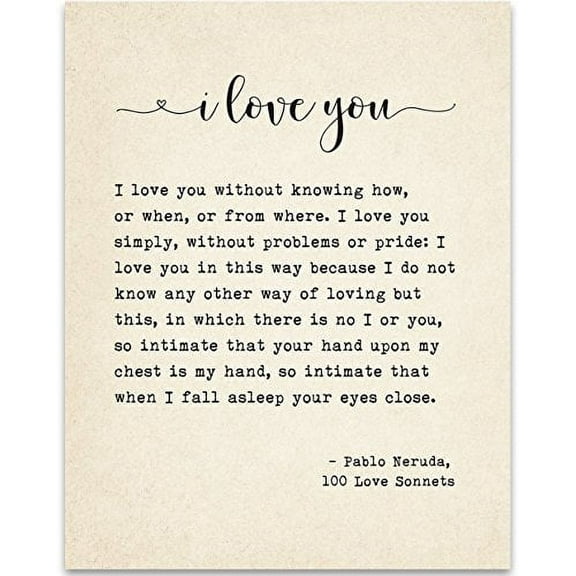 i love you
I love you without knowing how,
or when, or from where. I love you
simply, without problems or pride: I
love you in this way because I do not
know any other way of loving but
this, in which there is no I or you,
so intimate that your hand upon my
chest is my hand, so intimate that
when I fall asleep your eyes close.
– Pablo Neruda,
100 Love Sonnets